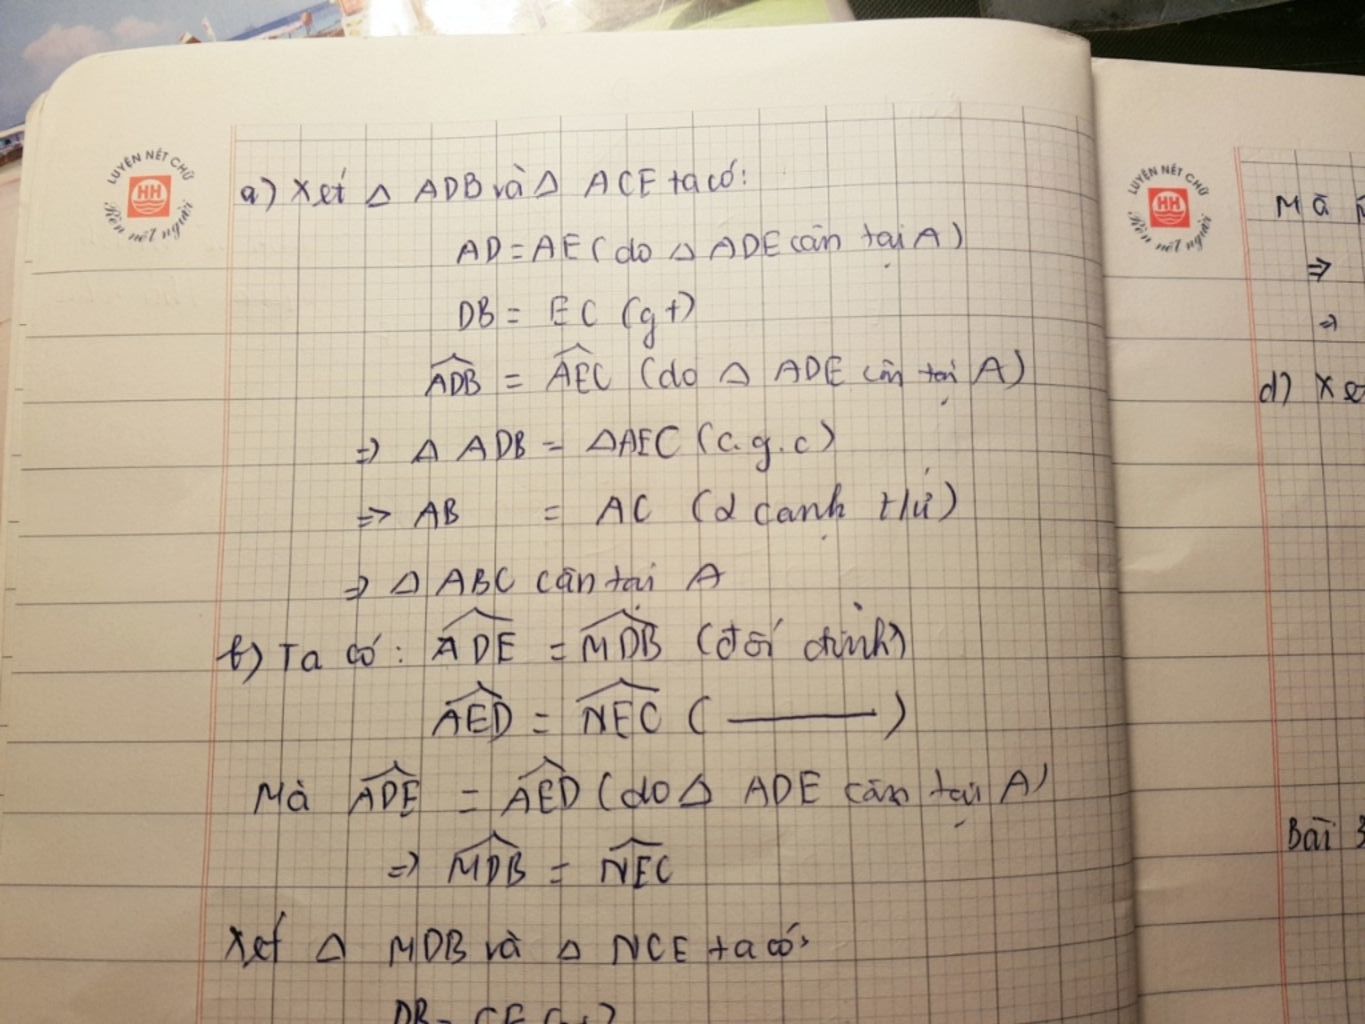 LUYỆN NÉT CHỮ
HH
Rèn nết người
a) Xét △ ADB và △ ACE ta có:
AD = AE (do △ ADE cân tại A)
DB = EC (gt)
ADB = AEC (do △ ADE cân tại A)
=> △ ADB = △AEC (c.g.c)
=> AB = AC (2 cạnh t/ứ)
=> △ ABC cân tại A
b) Ta có: ADE = MDB (đối đỉnh)
AED = NEC ( ——— )
Mà ADE = AED (do △ ADE cân tại A)
=> MDB = NEC
Xét △ MDB và △ NCE ta có:
DB = CE (gt)
LUYỆN NÉT CHỮ
HH
Rèn nết người
Mà
=>
=>
d) Xé
Bài 3